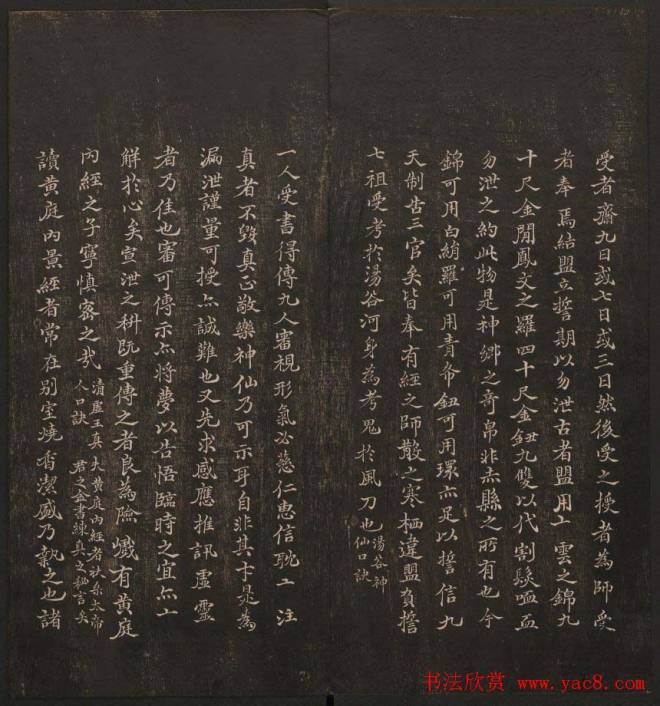 受者齋九日或七日或三日然後受之授者為師受
者奉焉結盟立誓期以勿泄古者盟用 雲之錦九
十尺金簡鳳文之羅四十尺金鈕九雙以代割髮歃血
勿泄之約此物是神鄉之奇帛非赤縣之所有也今
錦可用白絹羅可用青布鈕可用環亦足以誓信九
天制告三官矣皆奉有經之師散之寒栖違盟負誓
七祖受考於湯谷河身為考鬼於風刀也湯谷神
仙口訣
一人受書得傳九人審視形氣必慈仁惠信耽 注
真者不毀真正敬樂神仙乃可示耳自非其才是為
漏泄謹量可授亦誠難也又先求感應推訊虛靈
者乃佳也審可傳示亦將夢以告悟臨時之宜亦
解於心矣宣泄之科既重傳之者良為險巇有黃庭
內經之子寧慎密之哉清虛王真
人口訣
夫黃庭內經者扶桑太帝
君之金書鍊真之秘言矣
讀黃庭內景經者常在別室燒香潔盛乃執之也諸
书法欣赏 www.yac8.com